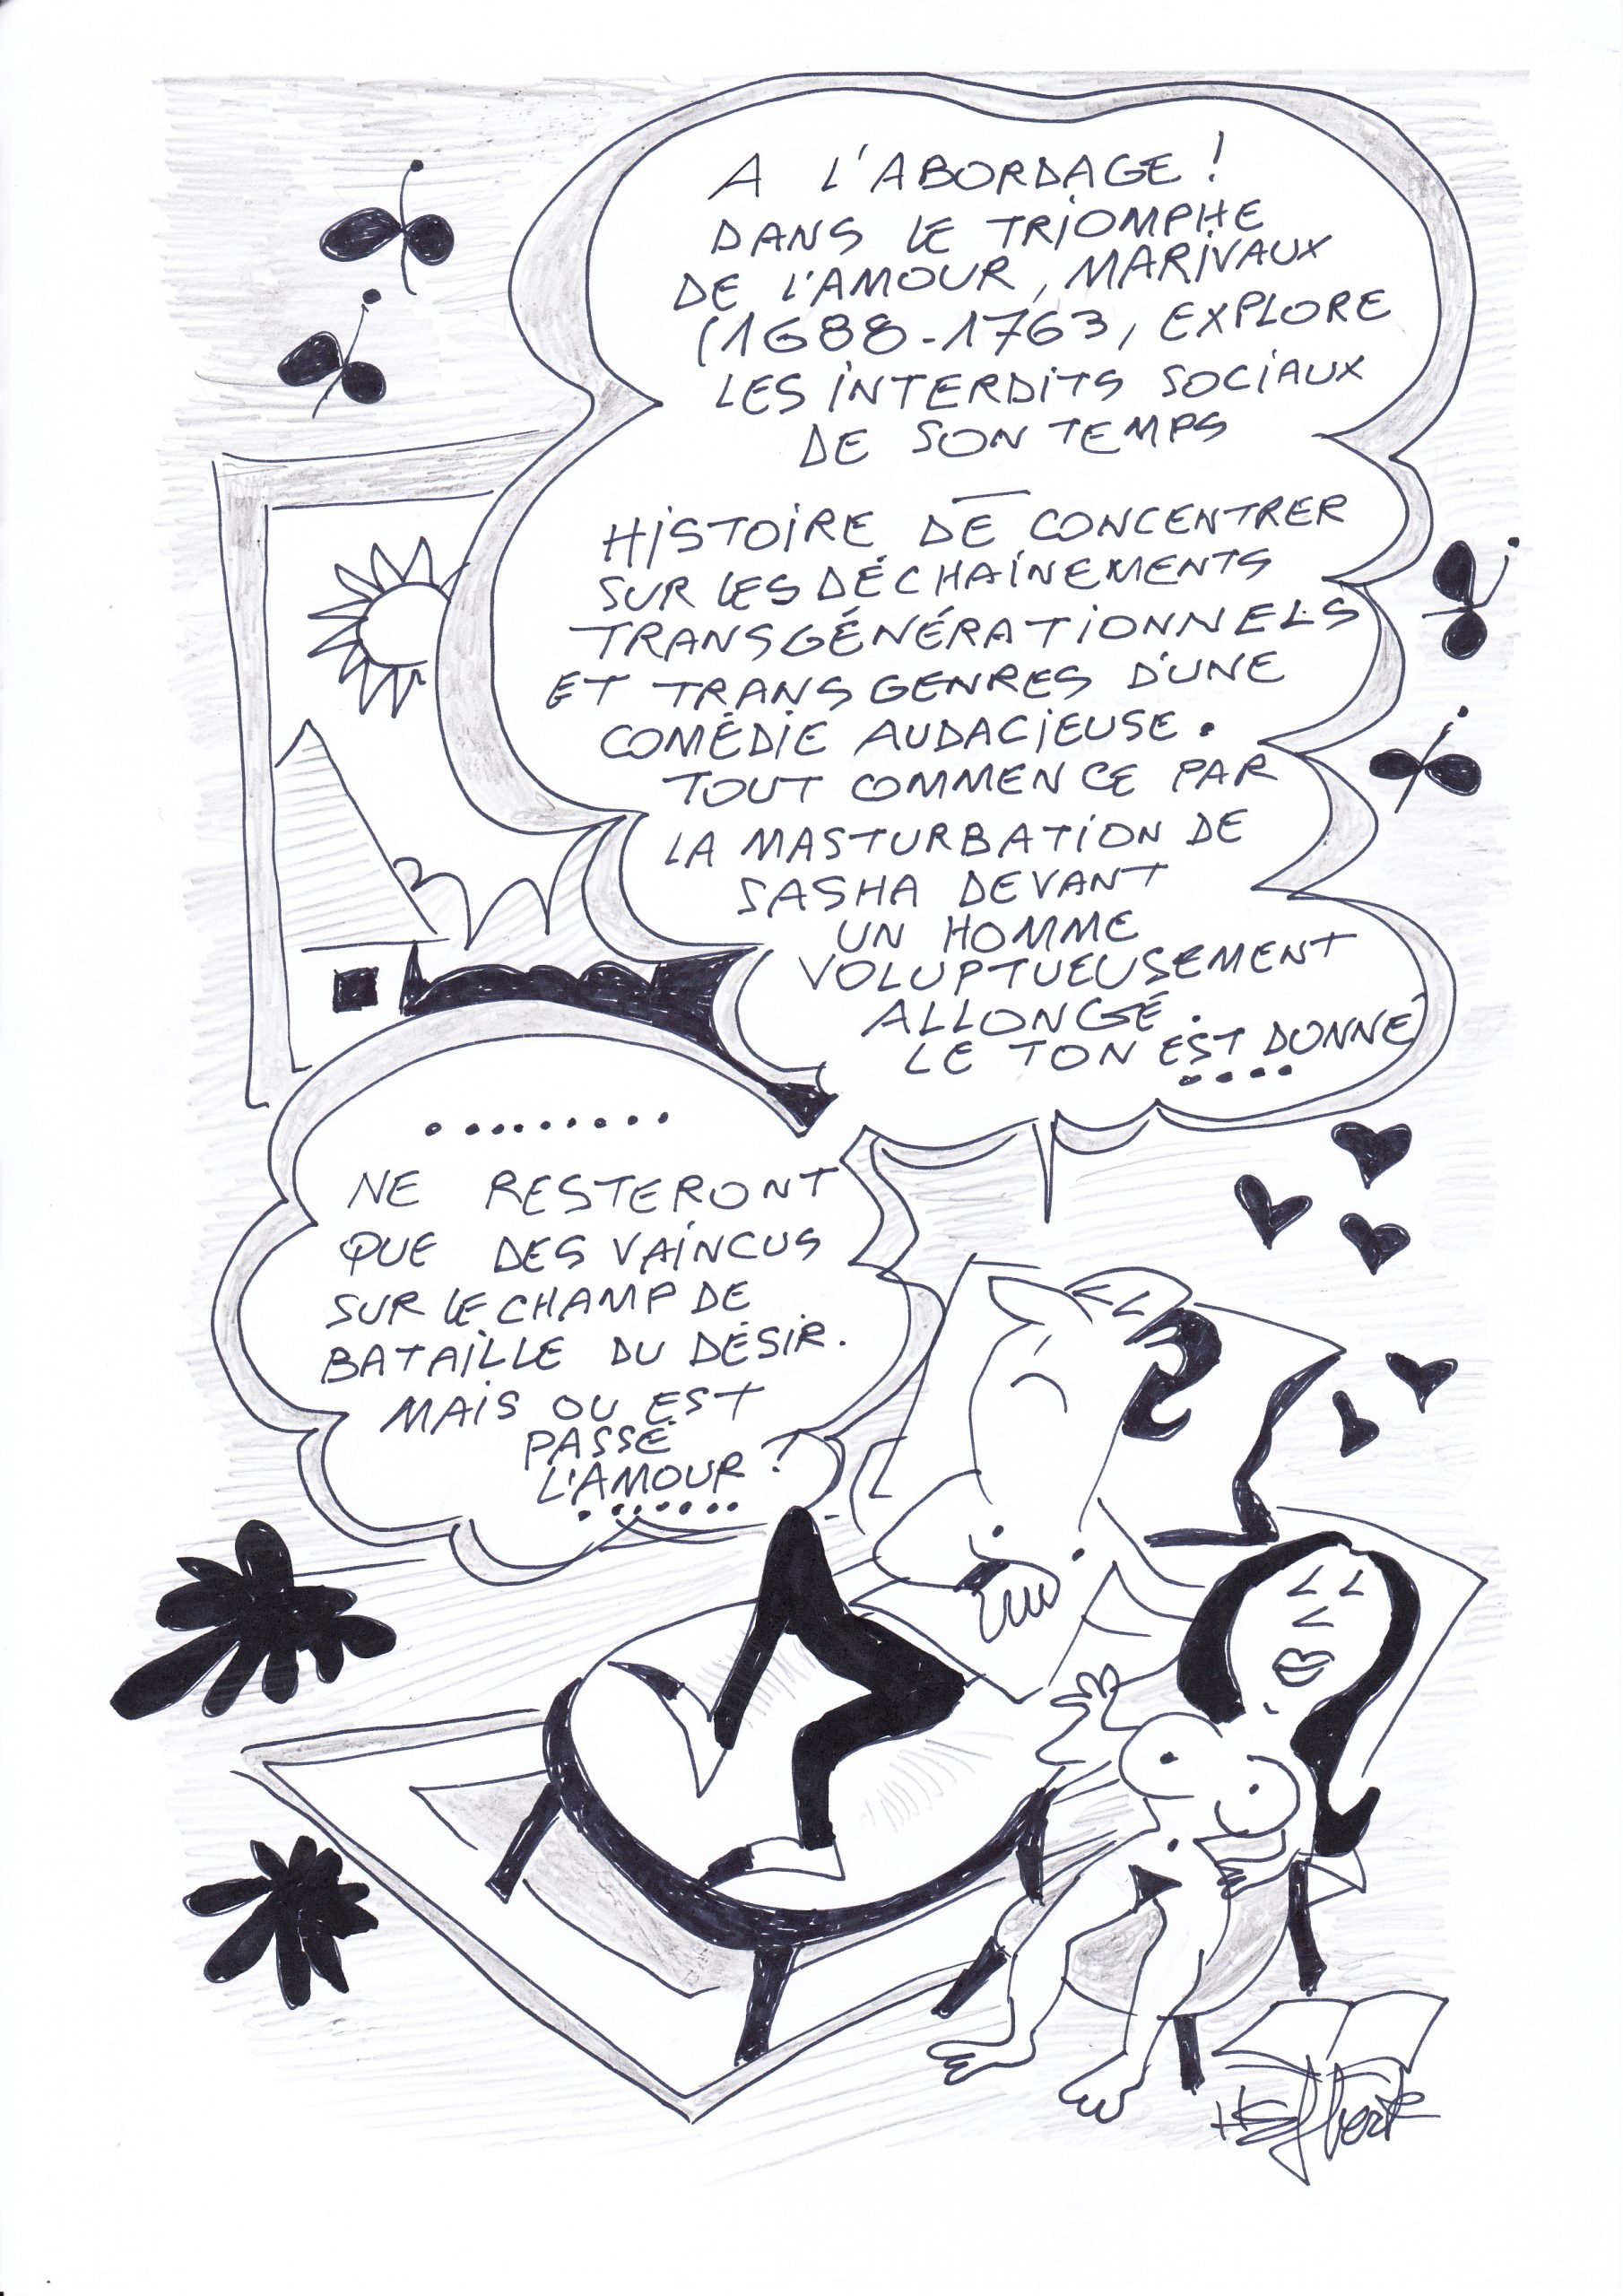 A L'ABORDAGE !
DANS LE TRIOMPHE
DE L'AMOUR, MARIVAUX
(1688-1763, EXPLORE
LES INTERDITS SOCIAUX
DE SON TEMPS
HISTOIRE DE CONCENTRER
SUR LES DÉCHAINEMENTS
TRANSGÉNÉRATIONNELS
ET TRANSGENRES D'UNE
COMÉDIE AUDACIEUSE.
TOUT COMMENCE PAR
LA MASTURBATION DE
SASHA DEVANT
UN HOMME
VOLUPTUEUSEMENT
ALLONGÉ.
LE TON EST DONNÉ
....
.........
NE RESTERONT
QUE DES VAINCUS
SUR LE CHAMP DE
BATAILLE DU DÉSIR.
MAIS OU EST
PASSÉ
L'AMOUR ?
.......